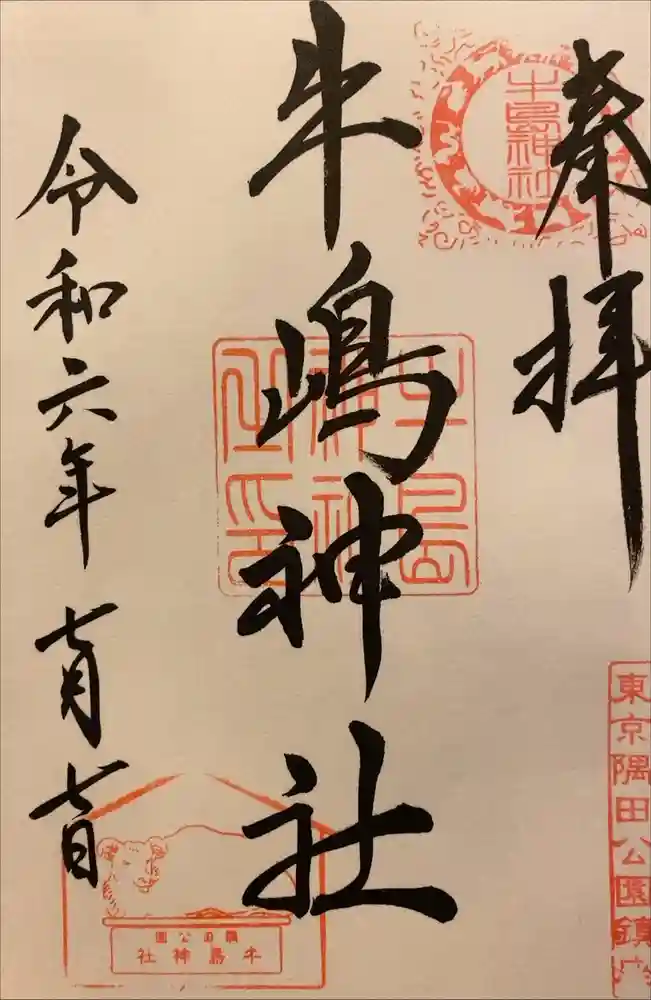 奉拝
牛島神社
東京隅田公園鎮
牛嶋神社
牛島神社
令和六年七月七日
隅田公園
牛島神社